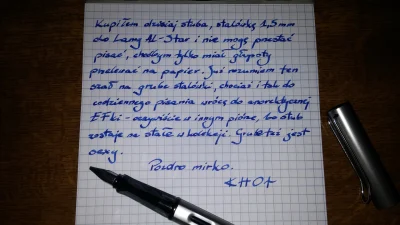 Kupiłem dzisiaj stuba, stalówkę 1,5mm
do Lamy AL-Star i nie mogę przestać
pisać, choćbym tylko miał głupoty
przelewać na papier. Już rozumiem ten
szał na grube stalówki, chociaż i tak do
codziennego pisania wrócę do anorektycznej
EFki - oczywiście w innym piórze, bo stub
zostaje na stałe w kolekcji. Grube też jest
sexy.
Pozdro mirko.